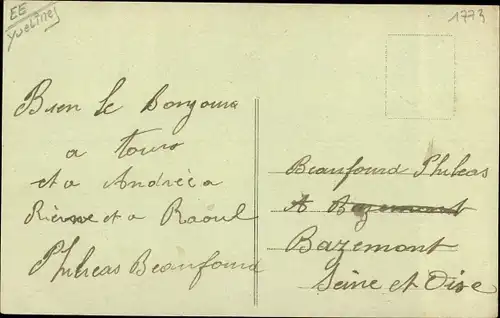 EE
Yvelines
1773
Bien le Bonjoure
a tous
et a Andrée a
Pierre et a Raoul
Phileas Beaufourd
Beaufourd Phileas
A Bazemont
Bazemont
Seine et Oise